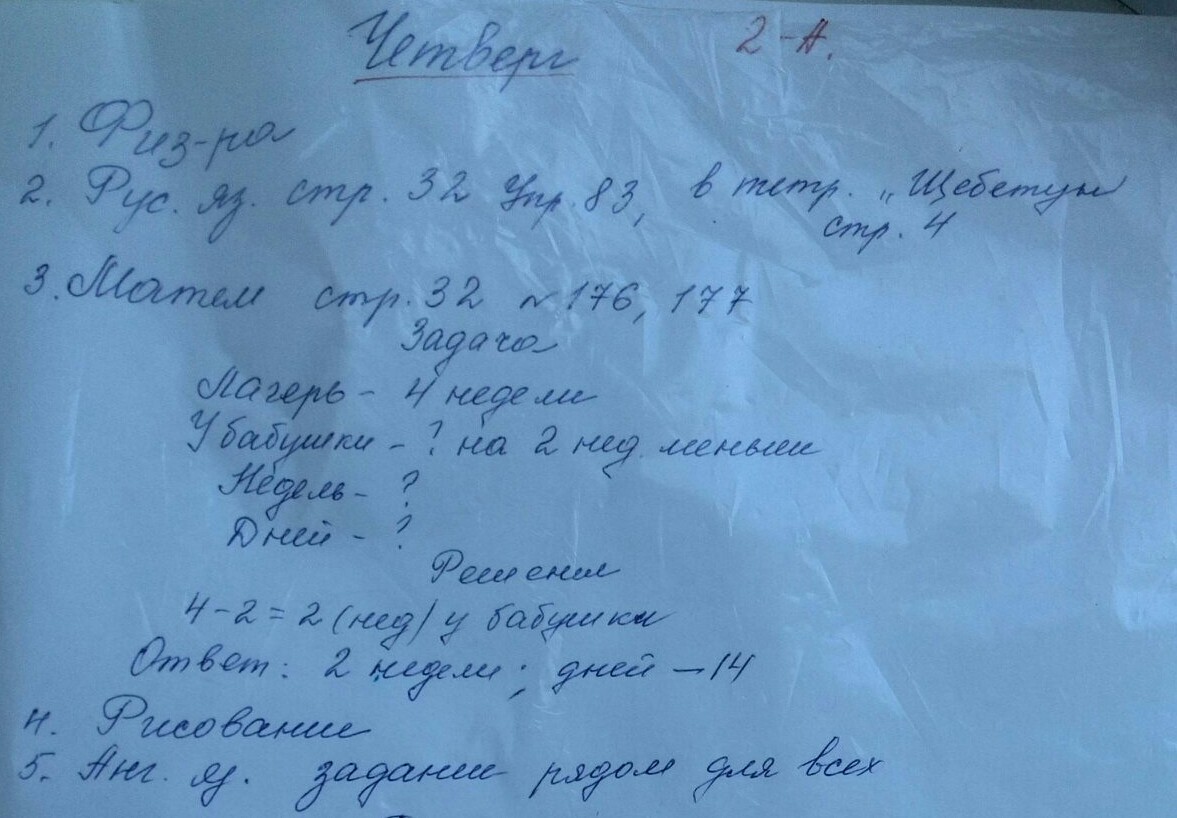 Четверг 2-А.
1. Физ-ра
2. Рус. яз. стр. 32 Упр. 83, в тетр. „Щебетуны
стр. 4
3. Матем стр. 32 № 176, 177
Задача
Лагерь - 4 недели
У бабушки - ? на 2 нед. меньше
Недель - ?
Дней - ?
Решение
4-2=2 (нед) у бабушки
Ответ: 2 недели; дней - 14
4. Рисование
5. Анг. яз. задание рядом для всех